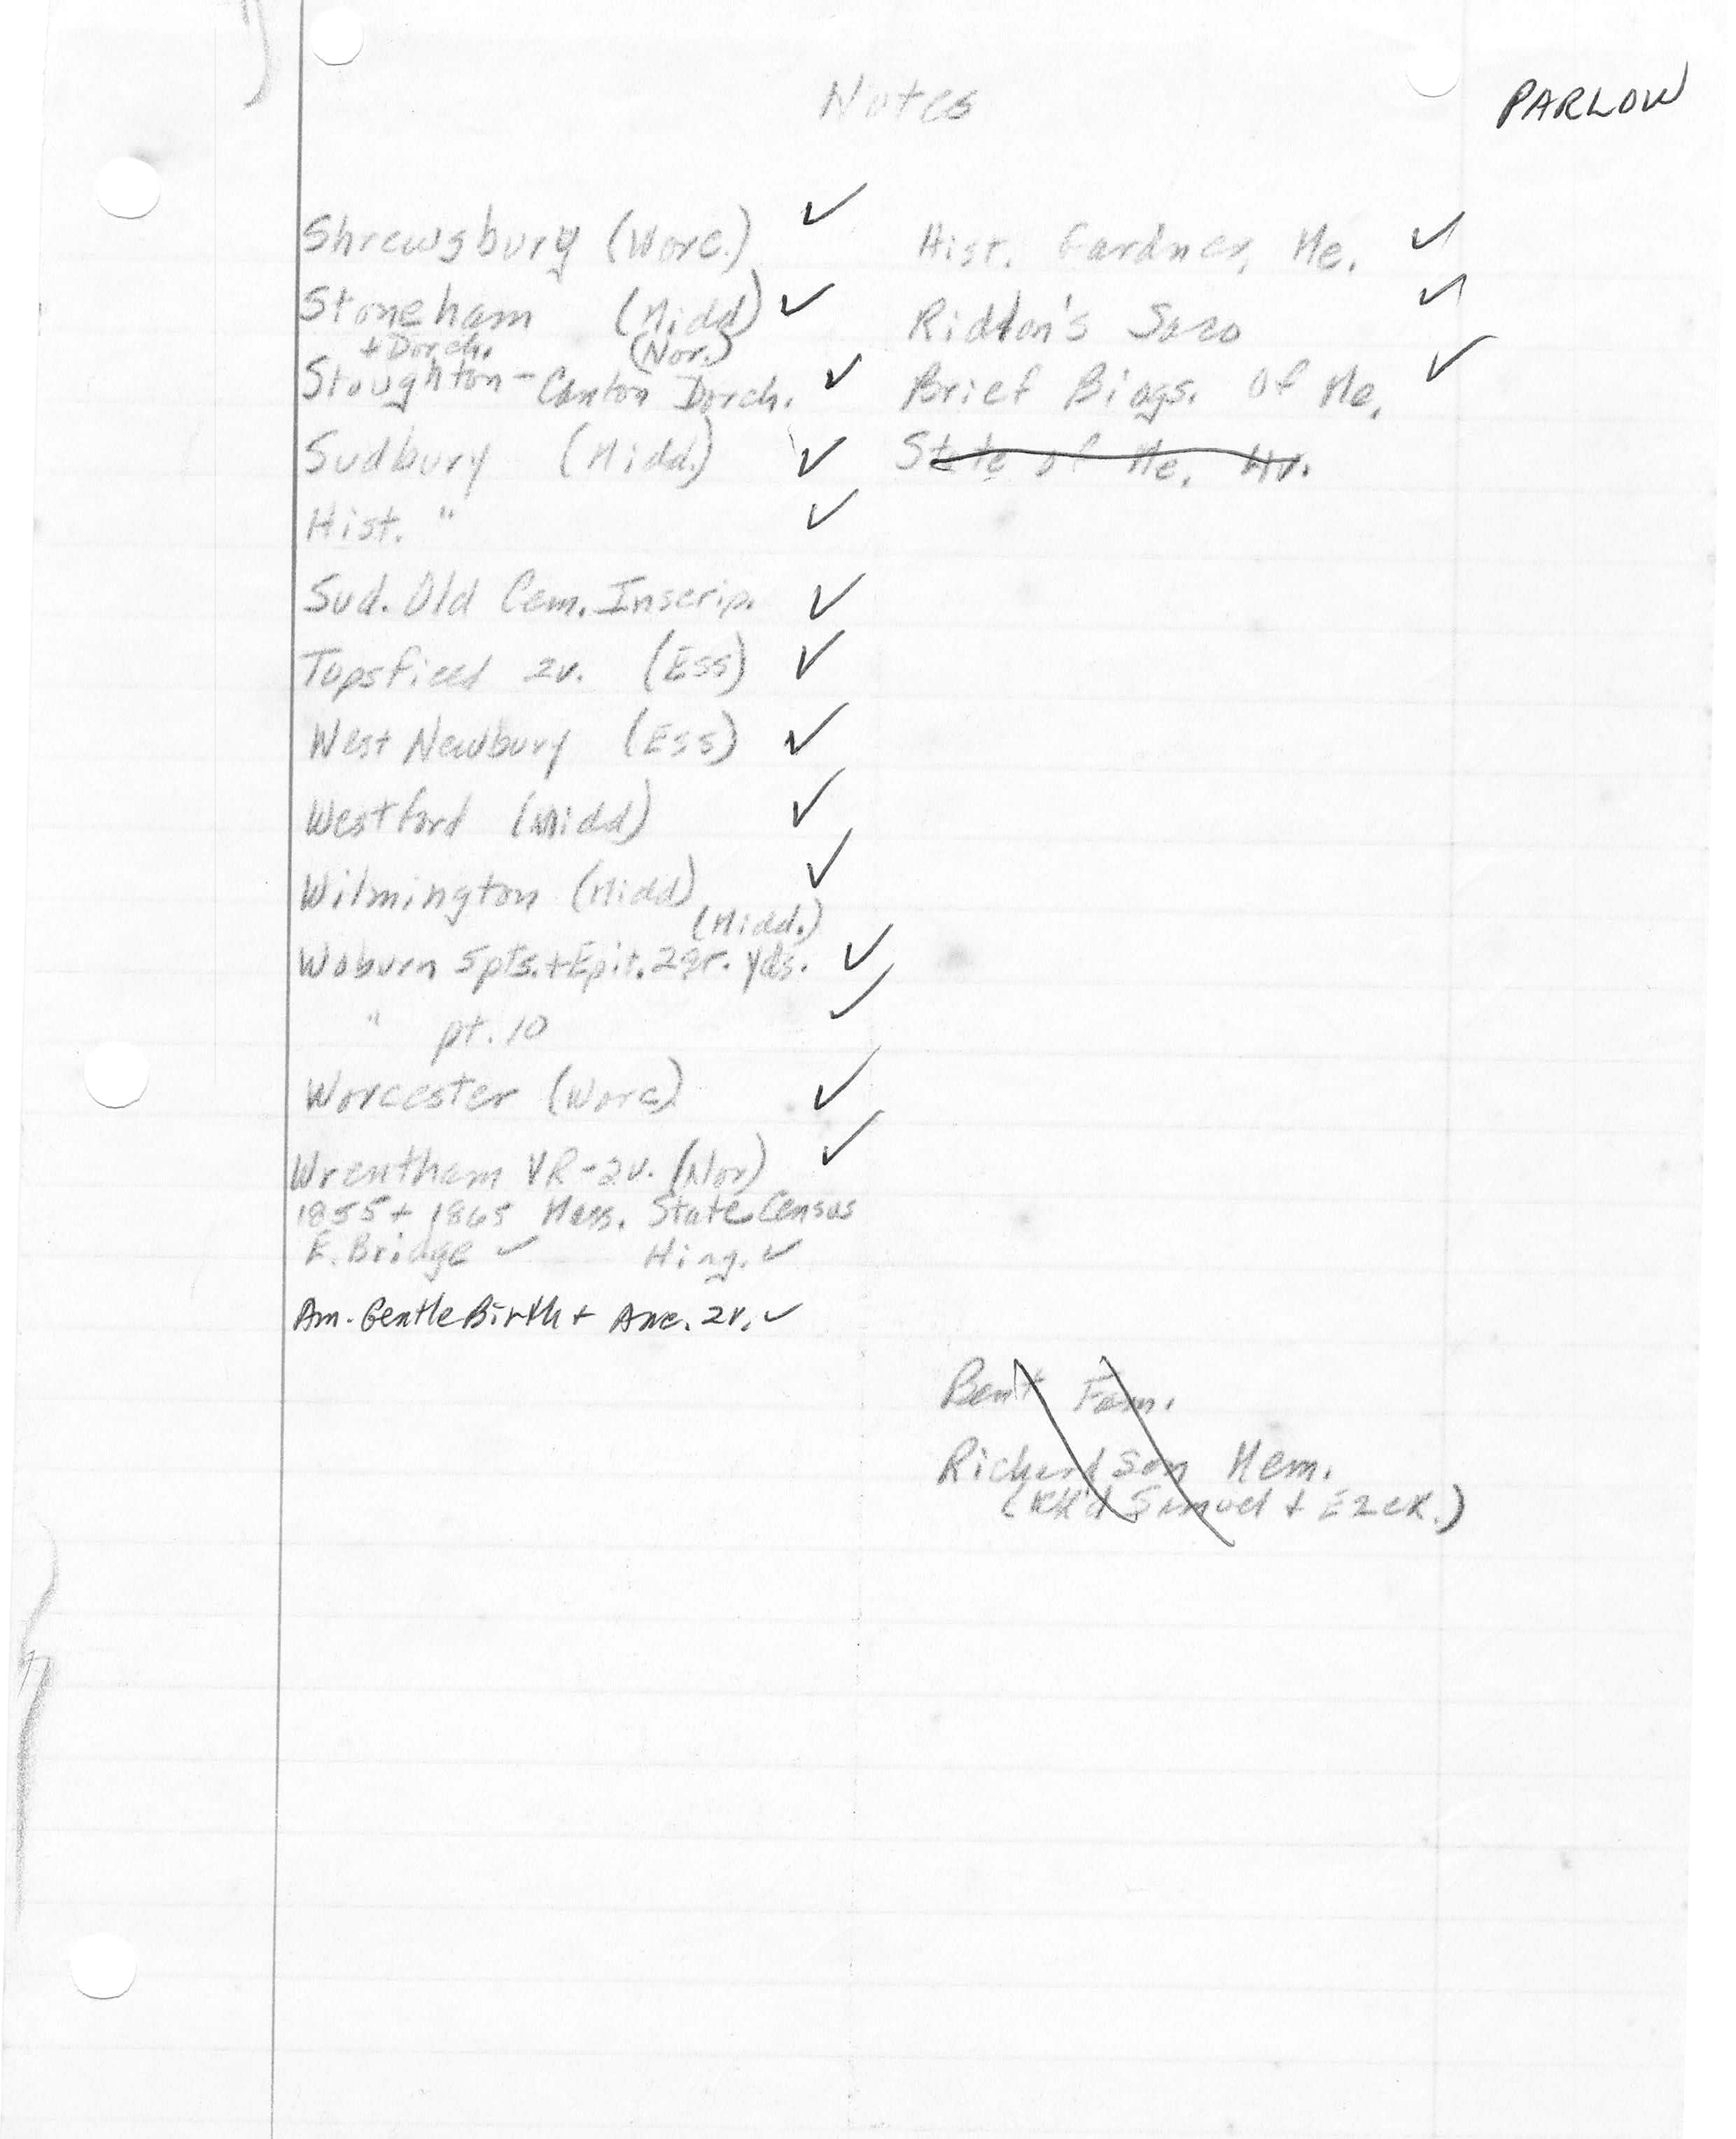 Notes
PARLOW
Shrewsbury (Worc.) ✓
Stoneham (Midd) ✓
+ Dorch. (Nor.)
Stoughton - Canton Dorch. ✓
Sudbury (Midd.) ✓
Hist. " ✓
Sud. Old Cem. Inscrip. ✓
Topsfield 2v. (Ess) ✓
West Newbury (Ess) ✓
Westford (Midd) ✓
Wilmington (Midd) ✓
(Midd.)
Woburn 5pts. + Epit. 2 gr. yds. ✓
" pt. 10 ✓
Worcester (Worc) ✓
Wrentham VR - 2v. (Nor) ✓
1855 + 1865 Mass. State Census
E. Bridge ✓ Hing. ✓
Am. Gentle Birth + Anc. 2v. ✓
Hist. Gardner, Me. ✓
Ridlon's Saco ✓
Brief Biogs. of Me. ✓
State of Me.
Bent Fam.
Richardson Mem.
Samuel + Ezek.)